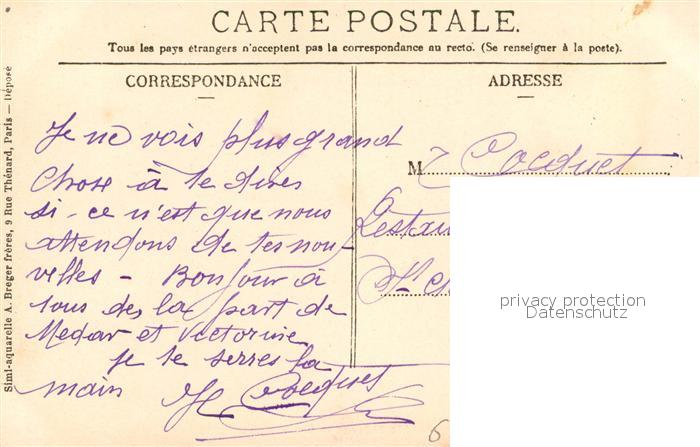 CARTE POSTALE.
Tous les pays étrangers n'acceptent pas la correspondance au recto. (Se renseigner à la poste).
CORRESPONDANCE
ADRESSE
Simi-aquarelle A. Breger frères, 9 Rue Thénard, Paris — Déposé
Je ne vois plus grand
chose à te dires
si-ce n'est que nous
attendons de tes nou-
velles - Bonjour à
tous de la part de
Medar et Victorine
je te serres la
main
M
privacy protection
Datenschutz
6